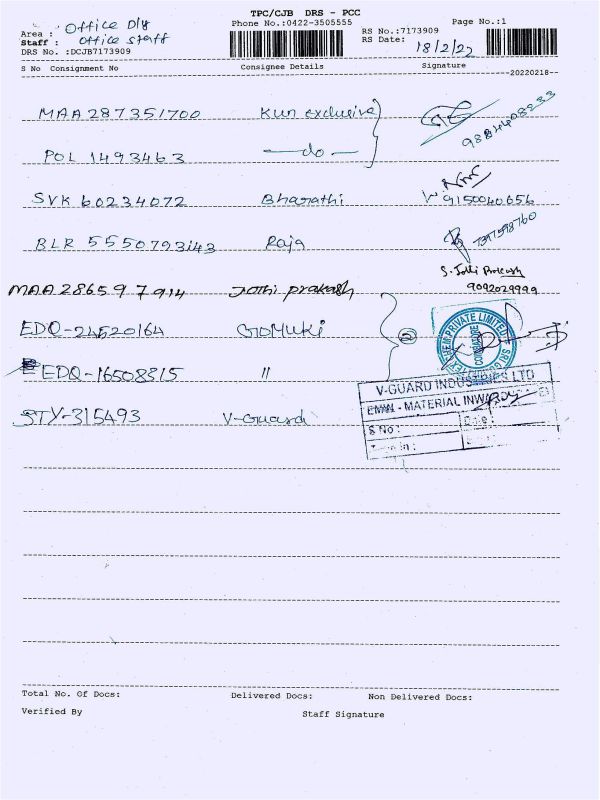 TPC/CJB DRS - PCC
Phone No.:0422-3505555
Page No.:1
Area : Office Dly
Staff : Office Staff
DRS No. :DCJB7173909
RS No.:7173909
RS Date: 18/2/22
S No Consignment No Consignee Details Signature
--20220218--
MAA 287351700 Kun exclusive
9884408233
POL 1493463 —do—
SVK 60234072 Bharathi 9150040656
BLR 5550793143 Raja 7397598760
S. Jothi Prakash
MAA 286597914 Jothi prakash 9092029999
EDQ-24520164 GOMUKI
EDQ-16508315 "
STY-315493 V-Guard
PRIVATE LIMITED
COIMBATORE
V-GUARD INDUSTRIES LTD
EMWI - MATERIAL INWARD
S No :
Date :
Total No. Of Docs: Delivered Docs: Non Delivered Docs:
Verified By Staff Signature